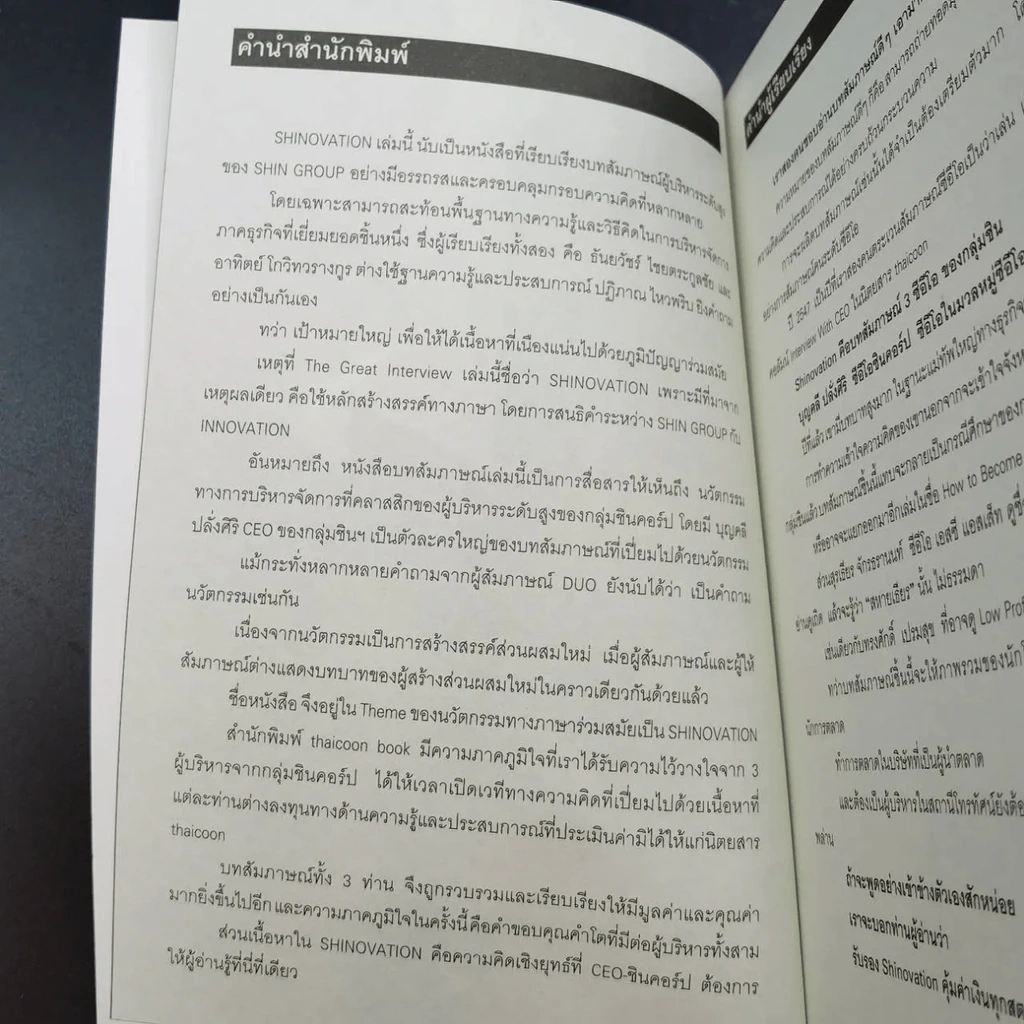 คำนำสำนักพิมพ์
SHINOVATION เล่มนี้ นับเป็นหนังสือที่เรียบเรียงบทสัมภาษณ์ผู้บริหารระดับสูง
ของ SHIN GROUP อย่างมีอรรถรสและครอบคลุมกรอบความคิดที่หลากหลาย
โดยเฉพาะสามารถสะท้อนพื้นฐานทางความรู้และวิธีคิดในการบริหารจัดการ
ภาคธุรกิจที่เยี่ยมยอดชิ้นหนึ่ง ซึ่งผู้เรียบเรียงทั้งสอง คือ ธันยวัชร์ ไชยตระกูลชัย และ
อาทิตย์ โกวิทวรางกูร ต่างใช้ฐานความรู้และประสบการณ์ ปฏิภาณ ไหวพริบ ยิงคำถาม
อย่างเป็นกันเอง
ทว่า เป้าหมายใหญ่ เพื่อให้ได้เนื้อหาที่เนืองแน่นไปด้วยภูมิปัญญาร่วมสมัย
เหตุที่ The Great Interview เล่มนี้ชื่อว่า SHINOVATION เพราะมีที่มาจาก
เหตุผลเดียว คือใช้หลักสร้างสรรค์ทางภาษา โดยการสนธิคำระหว่าง SHIN GROUP กับ
INNOVATION
อันหมายถึง หนังสือบทสัมภาษณ์เล่มนี้เป็นการสื่อสารให้เห็นถึง นวัตกรรม
ทางการบริหารจัดการที่คลาสสิกของผู้บริหารระดับสูงของกลุ่มชินคอร์ป โดยมี บุญคลี
ปลั่งศิริ CEO ของกลุ่มชินฯ เป็นตัวละครใหญ่ของบทสัมภาษณ์ที่เปี่ยมไปด้วยนวัตกรรม
แม้กระทั่งหลากหลายคำถามจากผู้สัมภาษณ์ DUO ยังนับได้ว่า เป็นคำถาม
นวัตกรรมเช่นกัน
เนื่องจากนวัตกรรมเป็นการสร้างสรรค์ส่วนผสมใหม่ เมื่อผู้สัมภาษณ์และผู้ให้
สัมภาษณ์ต่างแสดงบทบาทของผู้สร้างส่วนผสมใหม่ในคราวเดียวกันด้วยแล้ว
ชื่อหนังสือ จึงอยู่ใน Theme ของนวัตกรรมทางภาษาร่วมสมัยเป็น SHINOVATION
สำนักพิมพ์ thaicoon book มีความภาคภูมิใจที่เราได้รับความไว้วางใจจาก 3
ผู้บริหารจากกลุ่มชินคอร์ป ได้ให้เวลาเปิดเวทีทางความคิดที่เปี่ยมไปด้วยเนื้อหาที่
แต่ละท่านต่างลงทุนทางด้านความรู้และประสบการณ์ที่ประเมินค่ามิได้ให้แก่นิตยสาร
thaicoon
บทสัมภาษณ์ทั้ง 3 ท่าน จึงถูกรวบรวมและเรียบเรียงให้มีมูลค่าและคุณค่า
มากยิ่งขึ้นไปอีก และความภาคภูมิใจในครั้งนี้ คือคำขอบคุณคำโตที่มีต่อผู้บริหารทั้งสาม
ส่วนเนื้อหาใน SHINOVATION คือความคิดเชิงยุทธ์ที่ CEO-ชินคอร์ป ต้องการ
ให้ผู้อ่านรู้ที่นี่ที่เดียว
คำนำผู้เรียบเรียง
เราสองคนชอบอ่านบทสัมภาษณ์ดีๆ
ความหมายของบทสัมภาษณ์ดีๆ ก็คือ สามารถถ่ายทอด
ความคิดและประสบการณ์ได้อย่างครบถ้วนกระบวนความ
การจะผลิตบทสัมภาษณ์เช่นนั้นได้จำเป็นต้องเตรียมตัวมาก
อย่างการสัมภาษณ์คนระดับซีอีโอ
ปี 2547 เป็นปีที่เราสองคนตระเวนสัมภาษณ์ซีอีโอเป็นว่าเล่น
คอลัมน์ Interview With CEO ในนิตยสาร thaicoon
Shinovation คือบทสัมภาษณ์ 3 ซีอีโอ ของกลุ่มชิน
บุญคลี ปลั่งศิริ ซีอีโอชินคอร์ป ซีอีโอในมวลหมู่ซีอีโอ
ปีที่แล้ว เขามีบทบาทสูงมาก ในฐานะแม่ทัพใหญ่ทางธุรกิจ
การทำความเข้าใจความคิดของเขานอกจากจะเข้าใจ
กลุ่มชินแล้ว บทสัมภาษณ์ชิ้นนี้แทบจะกลายเป็นกรณีศึกษาของ
หรืออาจจะแยกออกมาอีกเล่มในชื่อ How to Become
ส่วนสุรเธียร จักรธรานนท์ ซีอีโอ เอสซี แอสเส็ท
อ่านดูเถิด แล้วจะรู้ว่า "สหายเธียร" นั้น ไม่ธรรมดา
เช่นเดียวกับทรงศักดิ์ เปรมสุข ที่อาจดู Low
ทว่าบทสัมภาษณ์ชิ้นนี้จะให้ภาพรวมของ
นักการตลาด
ทำการตลาดในบริษัทที่เป็นผู้นำตลาด
และต้องเป็นผู้บริหารในสถานีโทรทัศน์
พล่าน
ถ้าจะพูดอย่างเข้าข้างตัวเองสักหน่อย
เราจะบอกท่านผู้อ่านว่า
รับรอง Shinovation คุ้มค่าเงินทุก